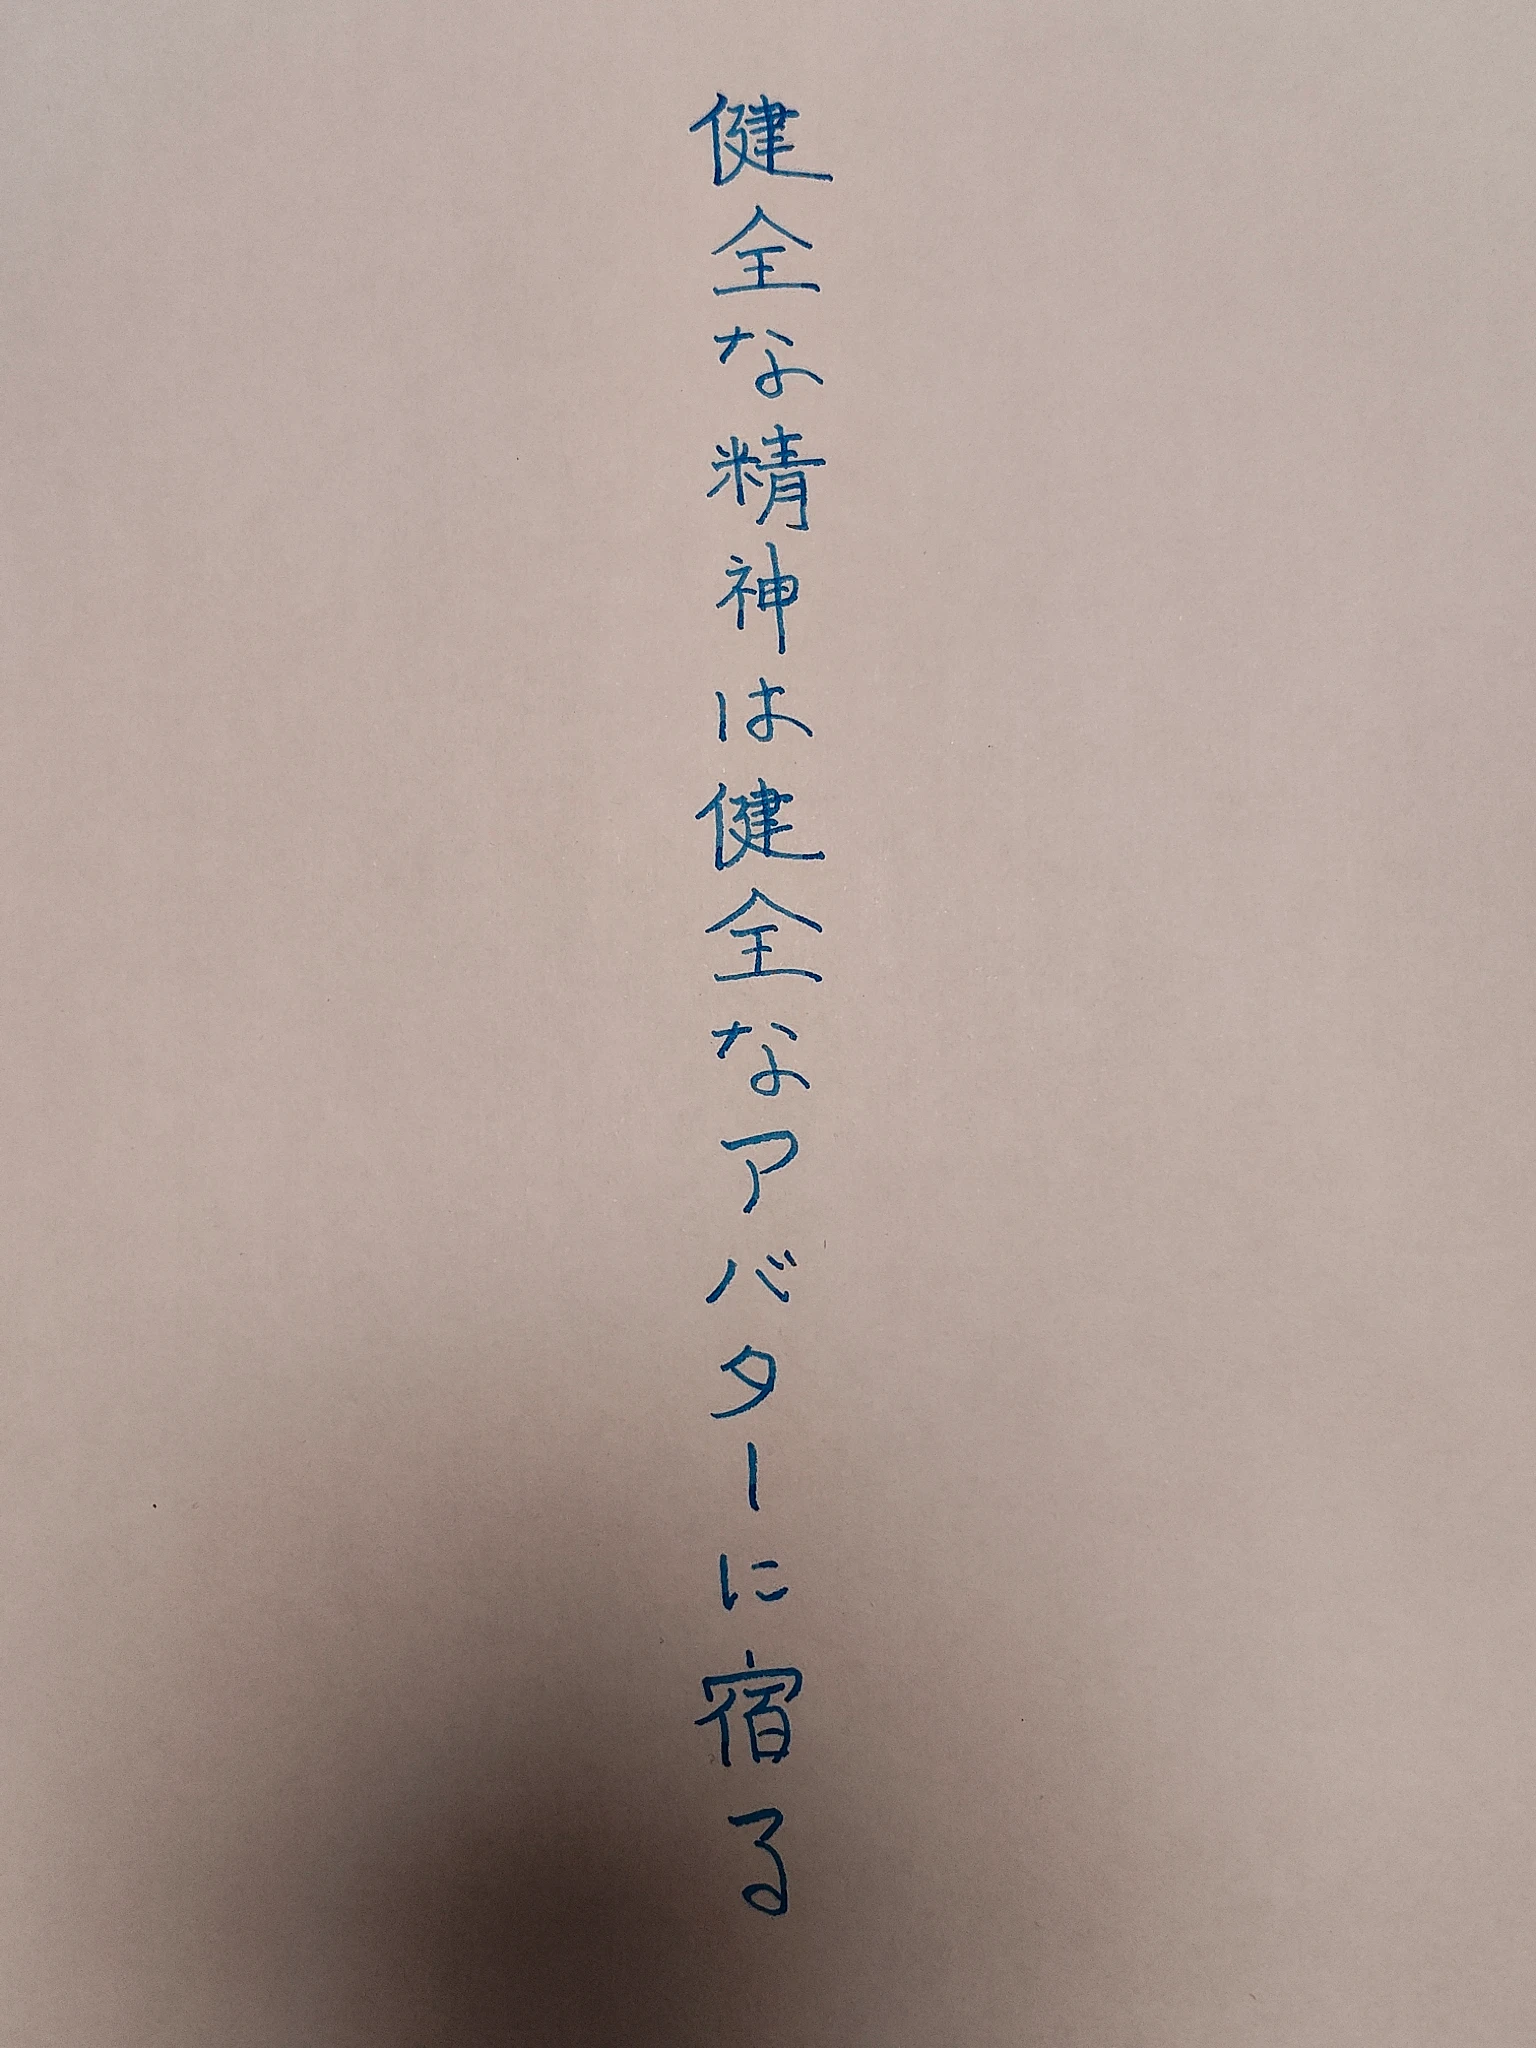 健全な精神は健全なアバターに宿る